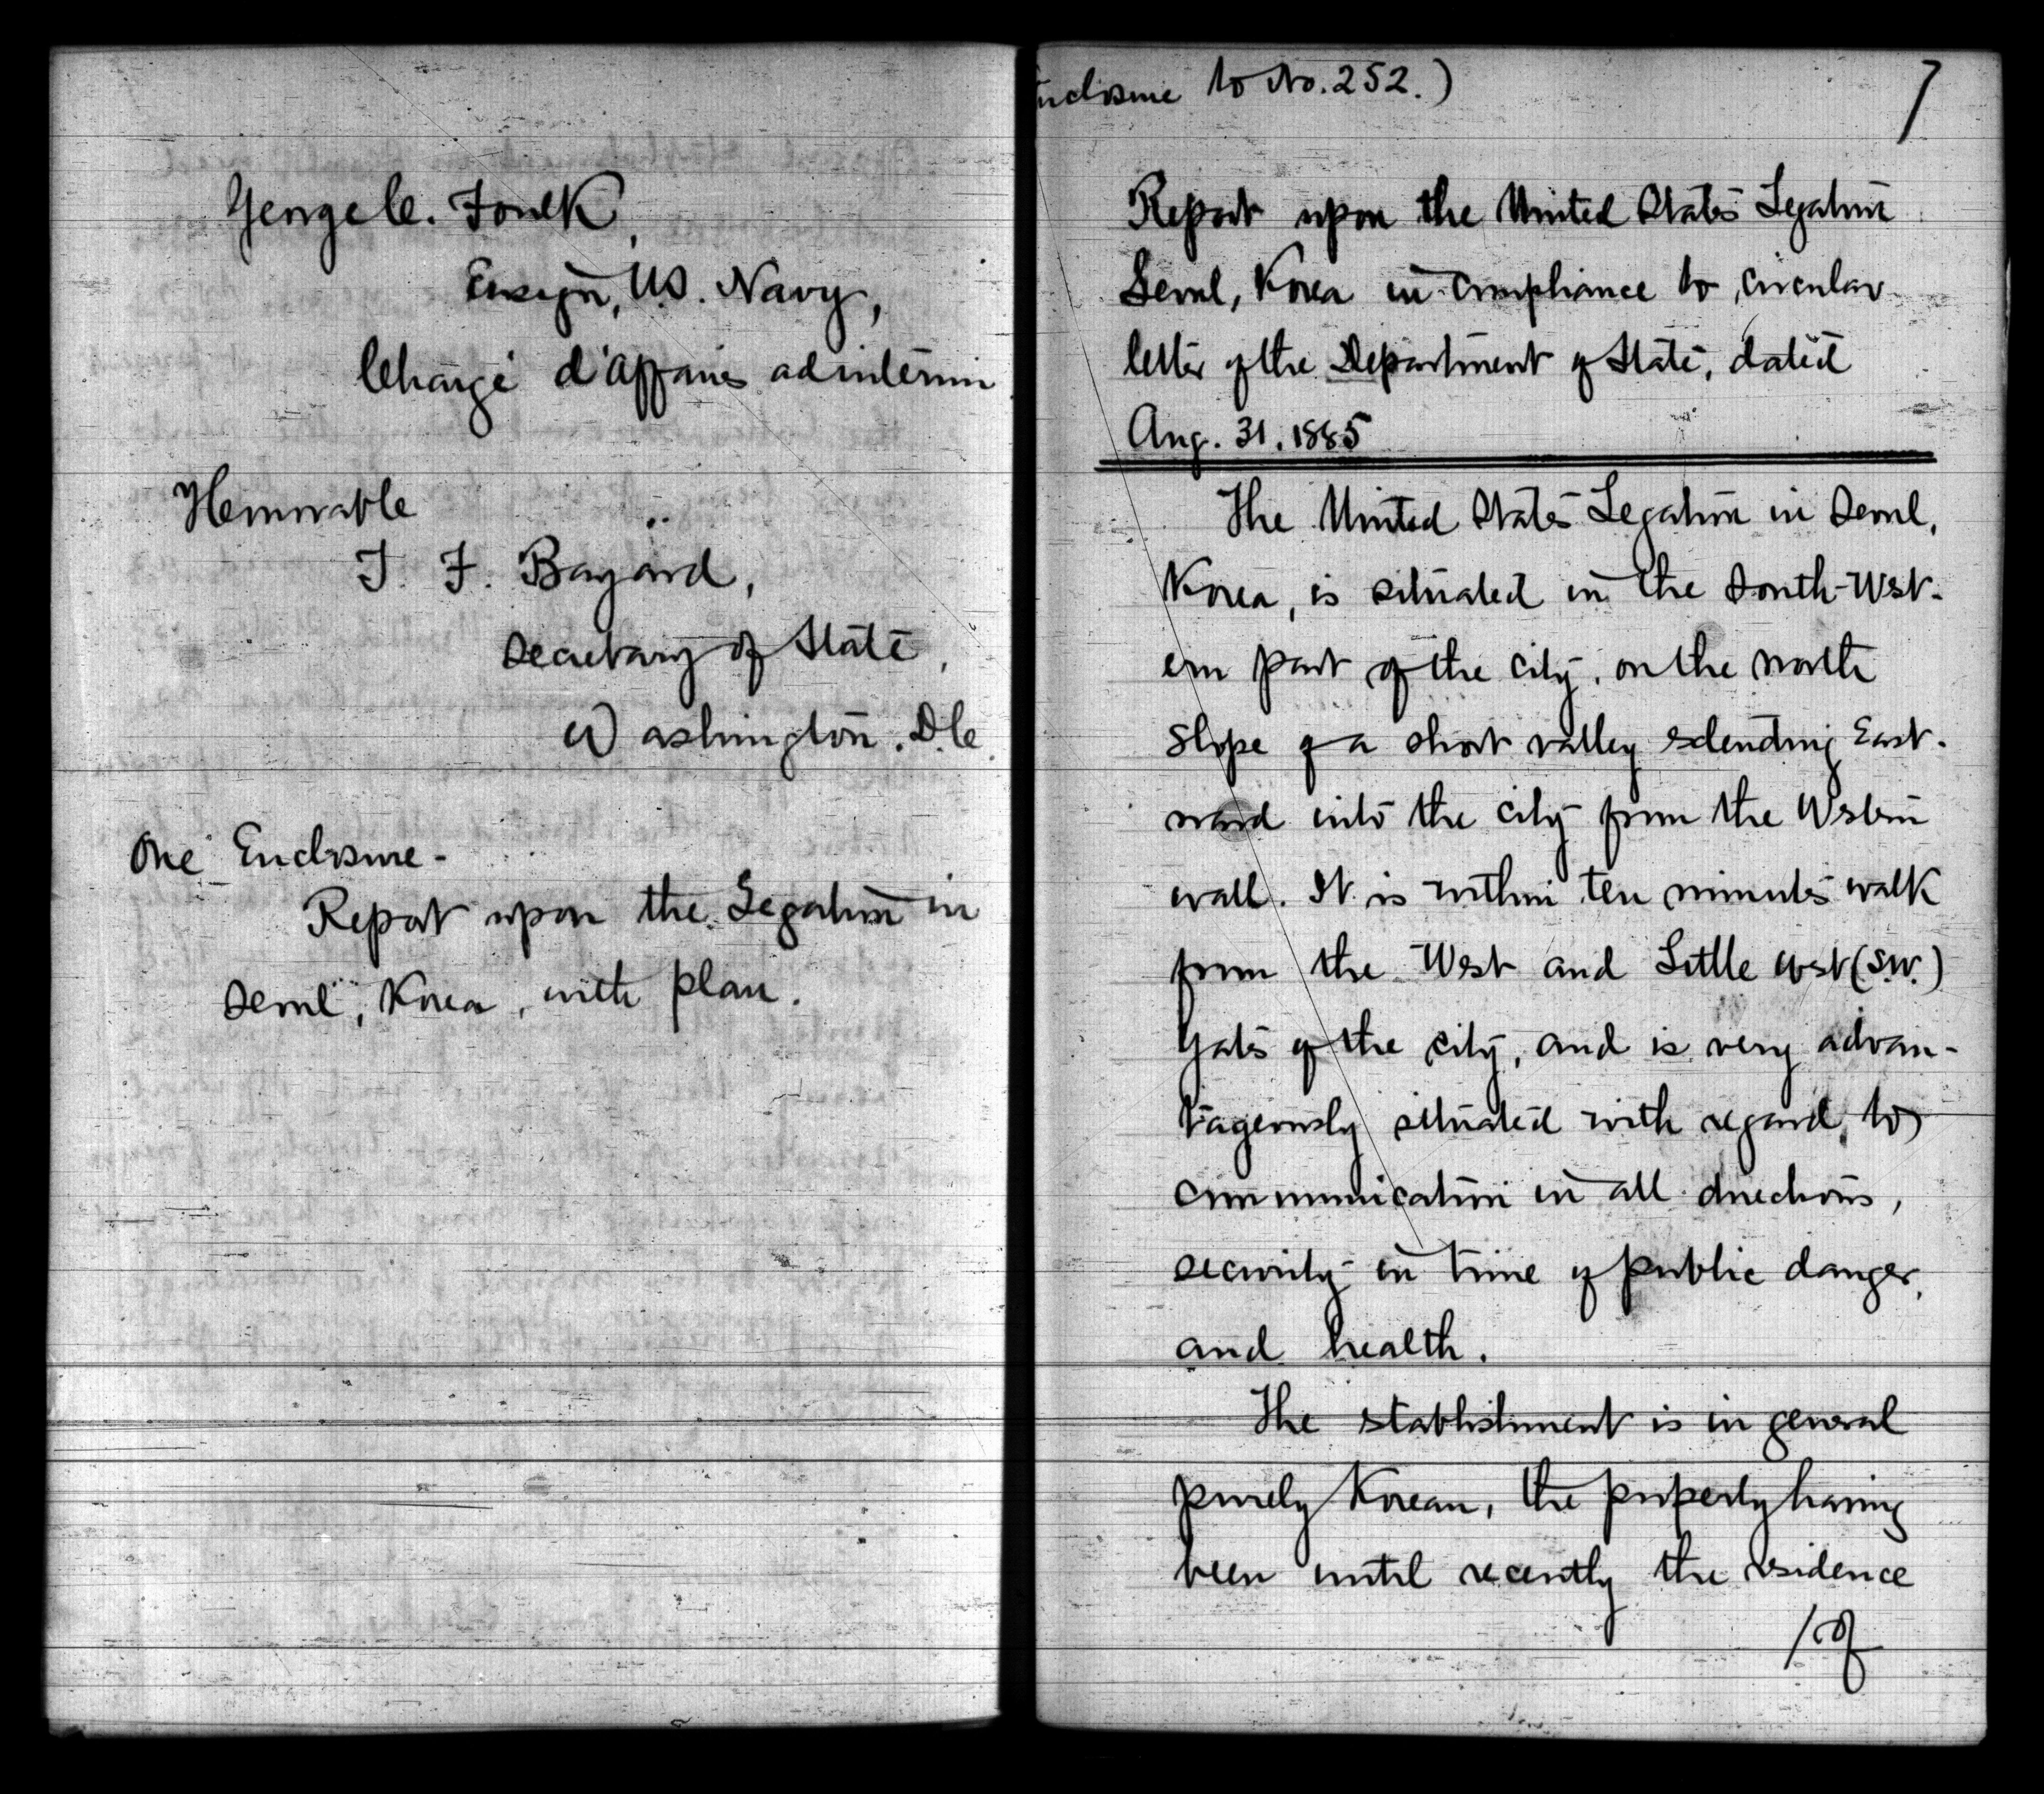 George C. Foulk,
Ensign, U.S. Navy,
Chargé d'Affaires ad interim
Honorable
T. F. Bayard,
Secretary of State,
Washington. D.C.
One Enclosure-
Report upon the Legation in
Seoul, Korea, with plan.
nclosure to No. 252.)
7
Report upon the United States Legation
Seoul, Korea in compliance to circular
letter of the Department of State, dated
Aug. 31. 1885
The United States Legation in Seoul,
Korea, is situated in the South-West-
ern part of the city, on the north
slope of a short valley extending East-
ward into the city from the Western
wall. It is within ten minutes walk
from the West and Little West (S.W.)
Gates of the city, and is very advan-
tageously situated with regard to
communication in all directions,
security in time of public danger,
and health.
The establishment is in general
purely Korean, the property having
been until recently the residence
/of